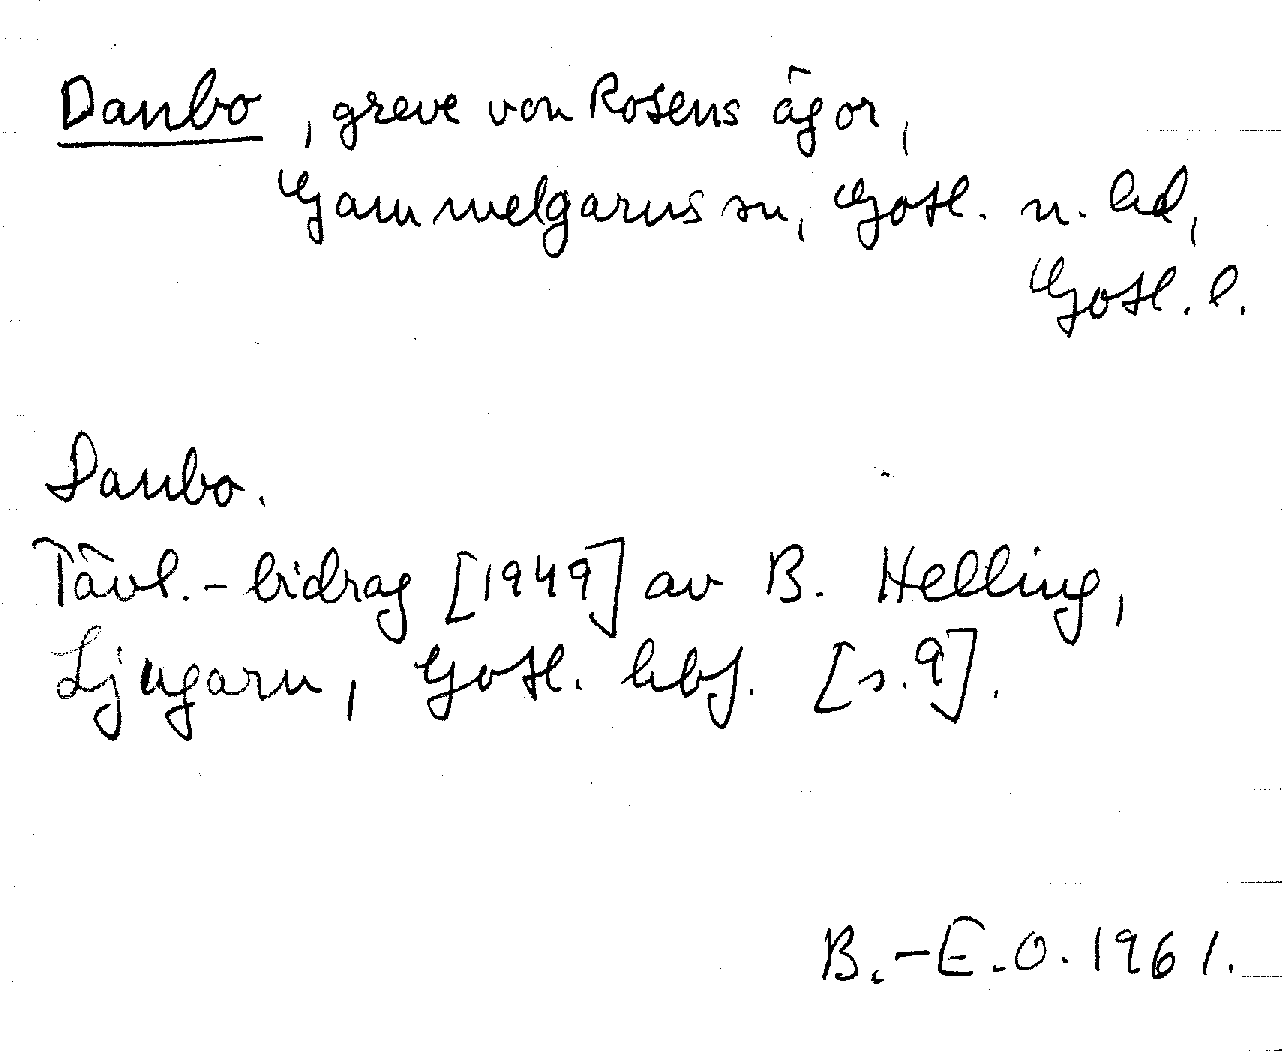 Danbo, greve von Rosens ägor,
Gammelgarns sn, Gotl. n. hd,
Gotl. l.
Danbo.
Tävl.-bidrag [1949] av B. Helling,
Ljugarn, Gotl. hbf. [s. 9].
B.-E.O. 1961.